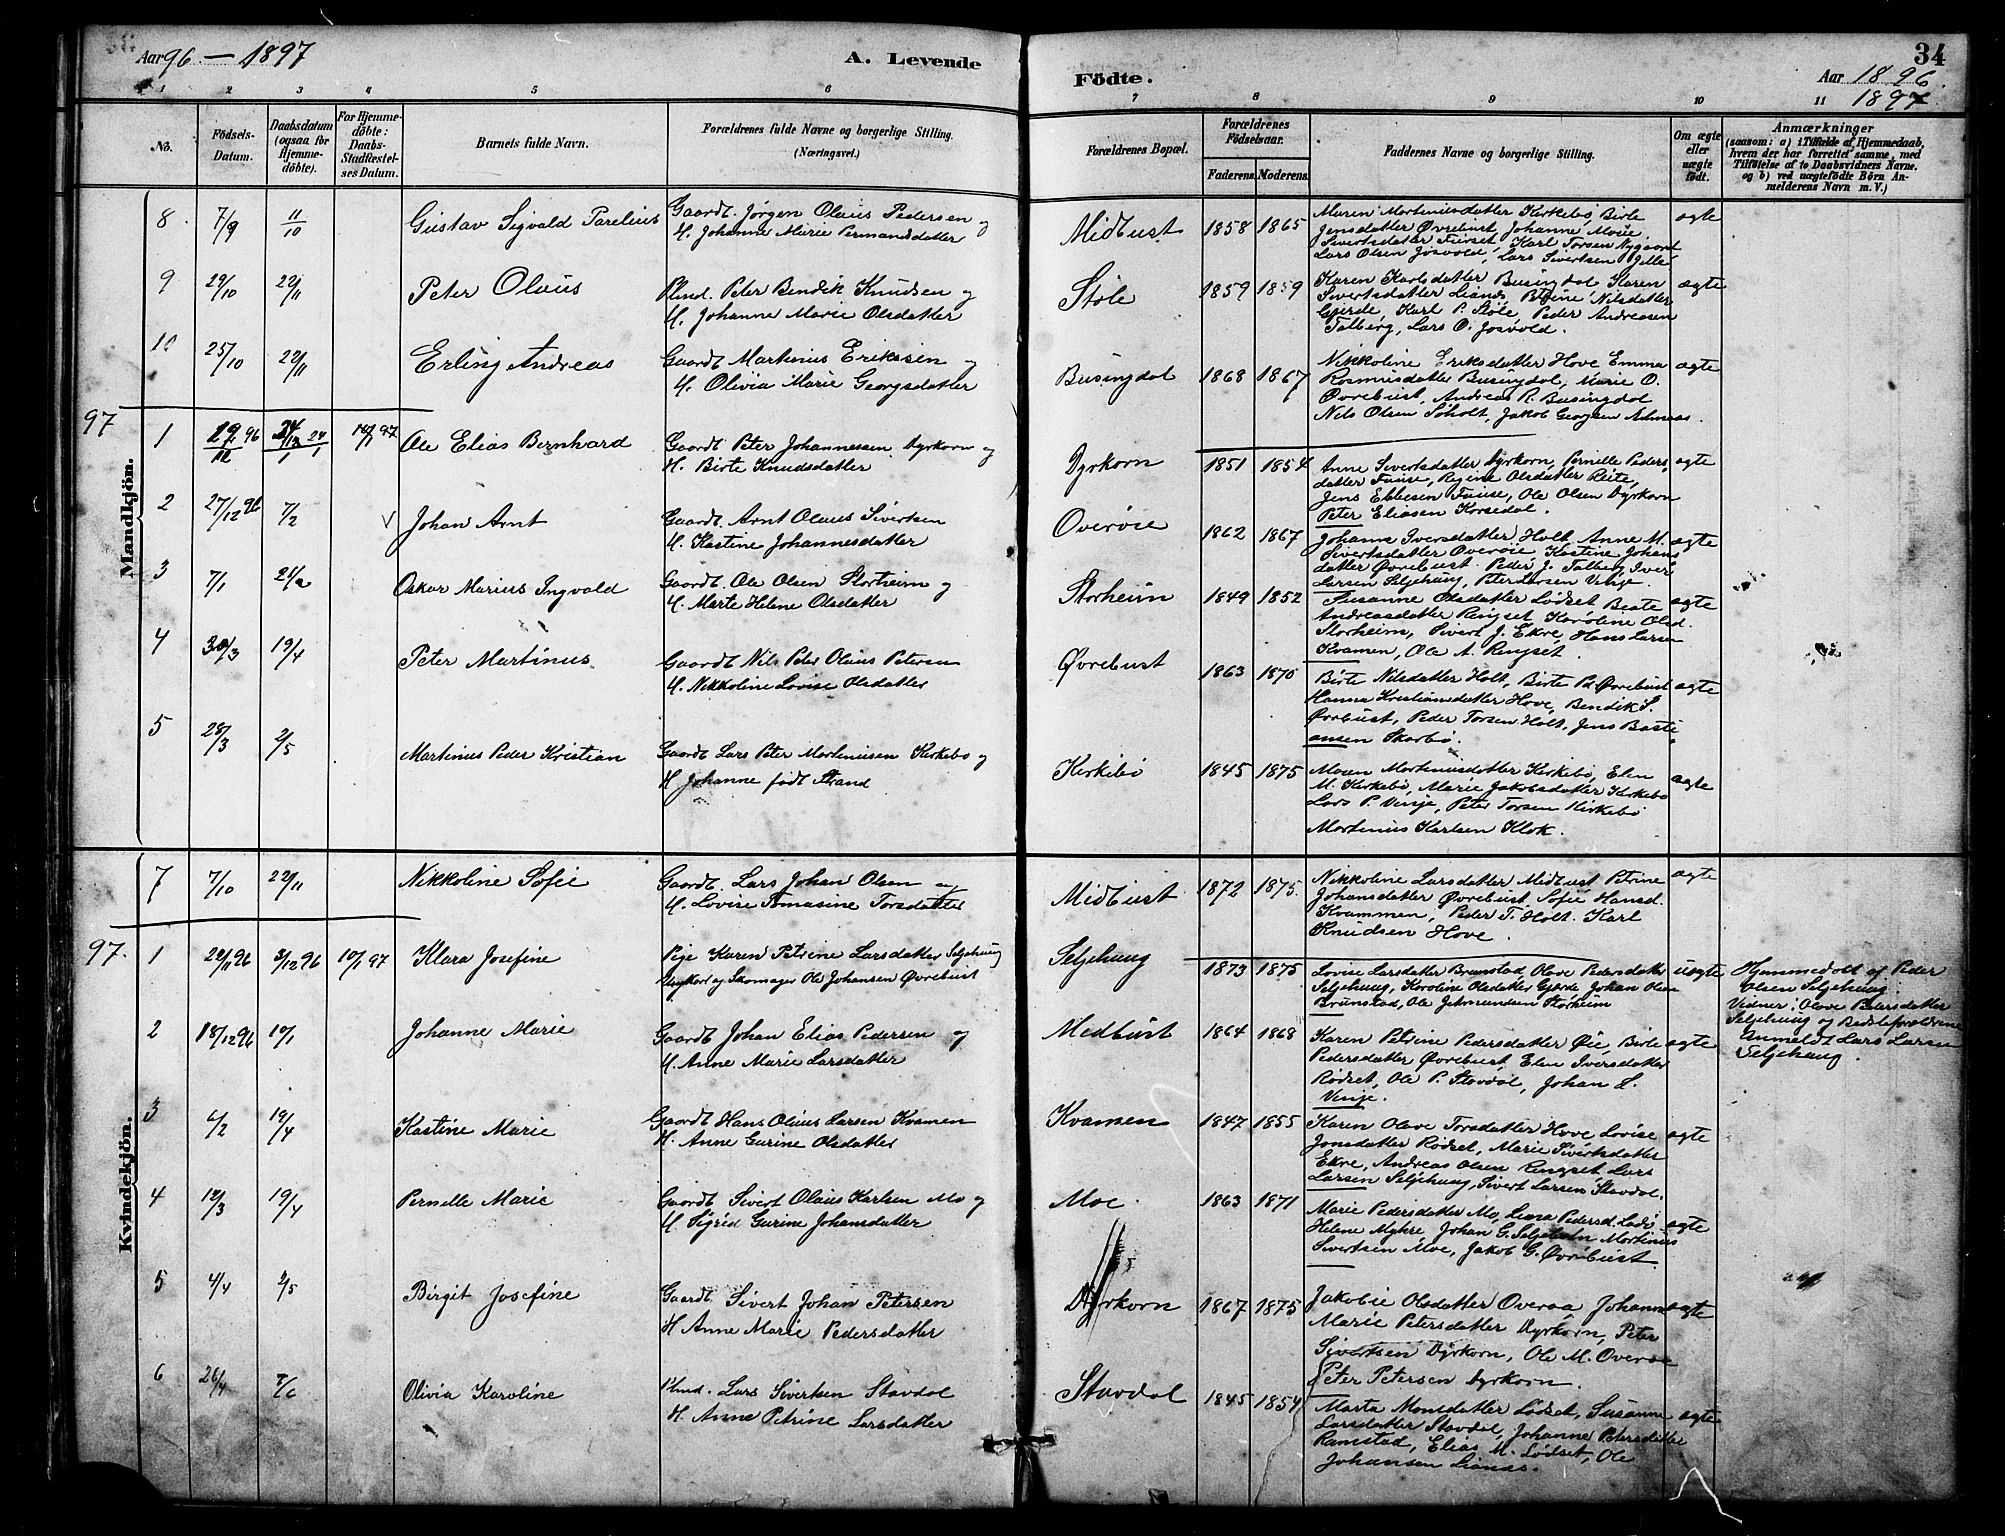 Aar 96 — 1897
A. Levende
Födte.
34
Aar 1896
1897
1 2 3 4 5 6 7 8 9 10 11
No.
Födsels-
Datum.
Daabsdatum
(ogsaa for
Hjemme-
döbte).
For Hjemme-
döbte:
Daabs-
Stadfæstel-
ses Datum.
Barnets fulde Navn.
Forældrenes fulde Navne og borgerlige Stilling.
(Næringsvei.)
Forældrenes Bopæl.
Forældrenes
Födselsaar.
Faderens.
Moderens.
Faddernes Navne og borgerlige Stilling.
Om ægte
eller
uægte
födt.
Anmærkninger
(saasom: a) i Tilfælde af Hjemmedaab,
hvem der har forrettet samme, med
Tilföielse af to Daabsvidners Navne,
og b) ved uægtefödte Börn An-
melderens Navn m. V.)
Mandkjön.
8 7/9 11/10 Gustav Sigvald Parelius
Gaardt. Jørgen Olaus Pedersen og
H. Johanne Marie Permandsdatter
Midtust 1858 1865
Maren Martinusdatter Kirkebø, Birte
Jensdatter Øvrebust, Johanne Marie
Sivertsdatter Furset, Karl Torsen Nygaard
Lars Olsen Josvold, Lars Sivertsen Gille
ægte
9 29/10 22/11 Peter Olaus
Plmd. Peter Bendik Knudsen og
H. Johanne Marie Olsdatter
Støle 1859 1859
Karen Karlsdatter Busingdal Karen
Sivertsdatter Liands, Nilsdatter
Gjerde, Karl P. Støle, Peder Andreasen
Talberg, Lars O. Josvold.
ægte
10 25/10 22/11 Erling Andreas
Gaardt Martinus Eriksen og
H. Olivia Marie Georgsdatter
Busingdal 1868 1867
Nikkoline Eriksdatter Hove Emma
Rasmusdatter Busingdal, Marie O.
Øvrebust, Andreas R. Busingdal
Nils Olsen Søholt, Jakob Georgsen
ægte
97
1 96 97 Ole Elias Bernhard
Gaardt Peter Johannessen Dyrkorn og
H. Birte Knudsdatter
Dyrkorn 1851 1854
Anne Sivertsdatter Dyrkorn, Pernille Peders
datter Fause, Regine Olsdatter Reite,
Jens Ebbesen Fause, Ole Olsen Dyrkorn
Peter Eliasen Korsedal.
ægte
2 27/12 96 7/2 Johan Arnt
Gaardt. Arnt Olaus Sivertsen
H. Kastine Johannesdatter
Overøie 1862 1867
Johanne Iversdatter Holt Anne M.
Sivertsdatter Overøie, Kastine Johans
datter Øvrebust Peder J. Talberg Iver
Larsen Seljehaug, Peter Larsen Vinje.
ægte
3 7/1 21/2 Oskar Marius Ingvald
Gaardt. Ole Olsen Storheim og
H. Marte Helene Olsdatter
Storheim 1849 1852
Susanne Olsdatter Lødset Beate
Andreasdatter Ringset Karoline Olsd.
Storheim, Sivert J. Ekre, Hans Larsen
Kvamen, Ole A. Ringset.
ægte
4 30/3 19/4 Peter Martinus
Gaardt Nils Peter Olaus Petersen
H. Nikkoline Lovise Olsdatter
Øvrebust 1863 1870
Birte Nilsdatter Holt, Birte Øvrebust
Hanna Kristiansdatter Hove, Bendik S.
Øvrebust, Peder Torsen Holt, Jens Basti
ansen Skarbø.
ægte
5 28/3 2/5 Martinus Peder Kristian
Gaardt Lars Peter Martinusen Kirkebø og
H Johanne født Strand
Kirkebø 1845 1875
Maren Martinusdatter Kirkebø, Elen
M. Kirkebø, Marie Jakobsdatter Kirkebø
Lars P. Vinje, Peter Torsen Kirkebø
Martinus Karlsen Klok.
ægte
Kvindekjön.
7 7/10 22/11 Nikkoline Sofie
Gaardt. Lars Johan Olsen og
H. Lovise Tomasine Torsdatter
Midtust 1872 1875
Nikkoline Larsdatter Midtust Petrine
Johansdatter Øvrebust Sofie Hansd.
Kvammen, Peder T. Holt. Karl
Knudsen Hove.
ægte
97.
1 22/11 96 3/12 96 10/1 97 Klara Josefine
Pige Karen Petrine Larsdatter Seljehaug
Ungkarl og Skomager Ole Johansen Øvrebust
Seljehaug 1873 1875
Lovise Larsdatter Brunstad, Olave Pedersdatter
Seljehaug, Karoline Olsdatter Gjerde Johan Olsen
Brunstad, Ole Jetmundsen Storheim
uægte
Hjemmedøbt af Peder
Olsen Seljehaug
Vidner: Olave Pedersdatter
Seljehaug og Bedsteforældrene
Anmeldt Lars Larsen
Seljehaug.
2 18/12 96 10/1 Johanne Marie
Gaardt Johan Elias Pedersen og
H. Anne Marie Larsdatter
Midtust 1864 1868
Karen Petrine Pedersdatter Øie, Birte
Pedersdatter Øvrebust, Elen Iversdatter
Rødset, Ole P. Stavdal, Johan L.
Vinje.
ægte
3 6/2 19/4 Kastine Marie
Gaardt Hans Olaus Larsen Kvamen
H. Anne Gurine Olsdatter
Kvamen 1847 1855
Karen Olave Torsdatter Hove Lovise
Jonsdatter Rødset, Marie Sivertsdatter
Ekre, Andreas Olsen Ringset Lars
Larsen Seljehaug, Sivert Larsen Stavdal.
ægte
4 12/3 19/4 Pernille Marie
Gaardt Sivert Olaus Karlsen Mo og
H. Sigrid Gurine Johansdatter
Moe. 1863 1871
Marie Pedersdatter Mo, Lina Pedersd.
Helene Myhre, Johan G. Martinus
Sivertsen Moe, Jakob G. Øvrebust
ægte
5 4/4 2/5 Birgit Josefine
Gaardt Sivert Johan Petersen
H Anne Marie Pedersdatter
Dyrkorn 1867 1875
Jakobie Olsdatter Overaa, Johanne
Marie Petersdatter Dyrkorn, Peter
Sivertsen Dyrkorn, Ole M. Overøie
Peter Petersen Dyrkorn.
ægte
6 26/4 7/6 Olivia Karoline
Plmd. Lars Sivertsen Stavdal
H. Anne Petrine Larsdatter
Stavdal 1845 1854
Marta Monsdatter Lødset, Susanne
Larsdatter Stavdal, Johanne Petersdatter
Ramstad, Elias M. Lødset, Ole
Johansen Liands.
ægte